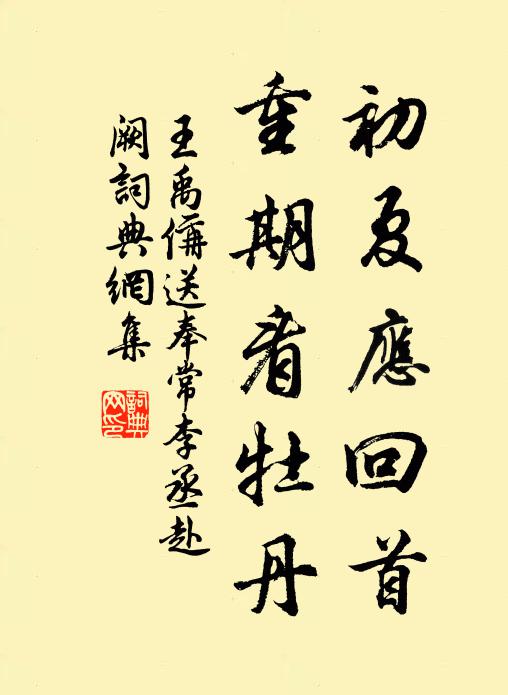 初夏應回首
重期看牡丹
王禹偁送奉常李丞赴
闕詞典網集
詞典网印